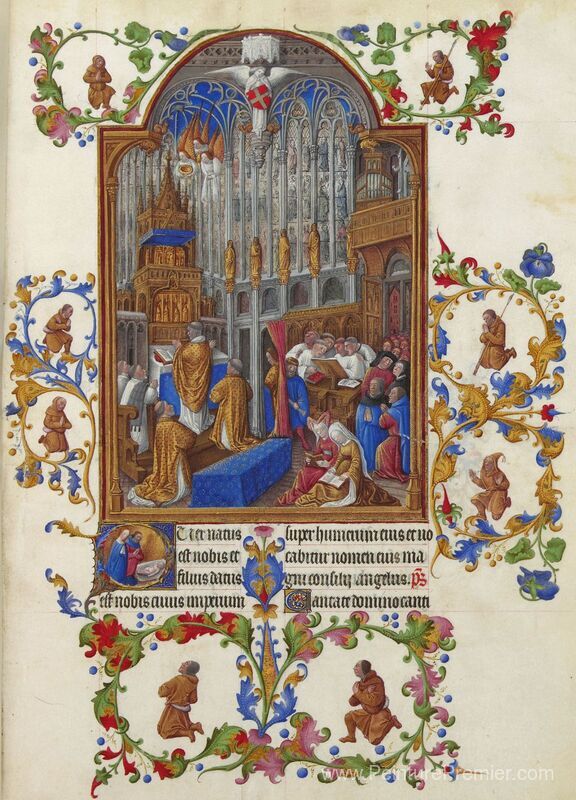 Puer natus
est nobis et
filius datus
est nobis cuius imperium
super humerum eius et vo
cabitur nomen eius ma
gni consilij angelus. ps
Cantate domino canti
www.PeinturePremier.com